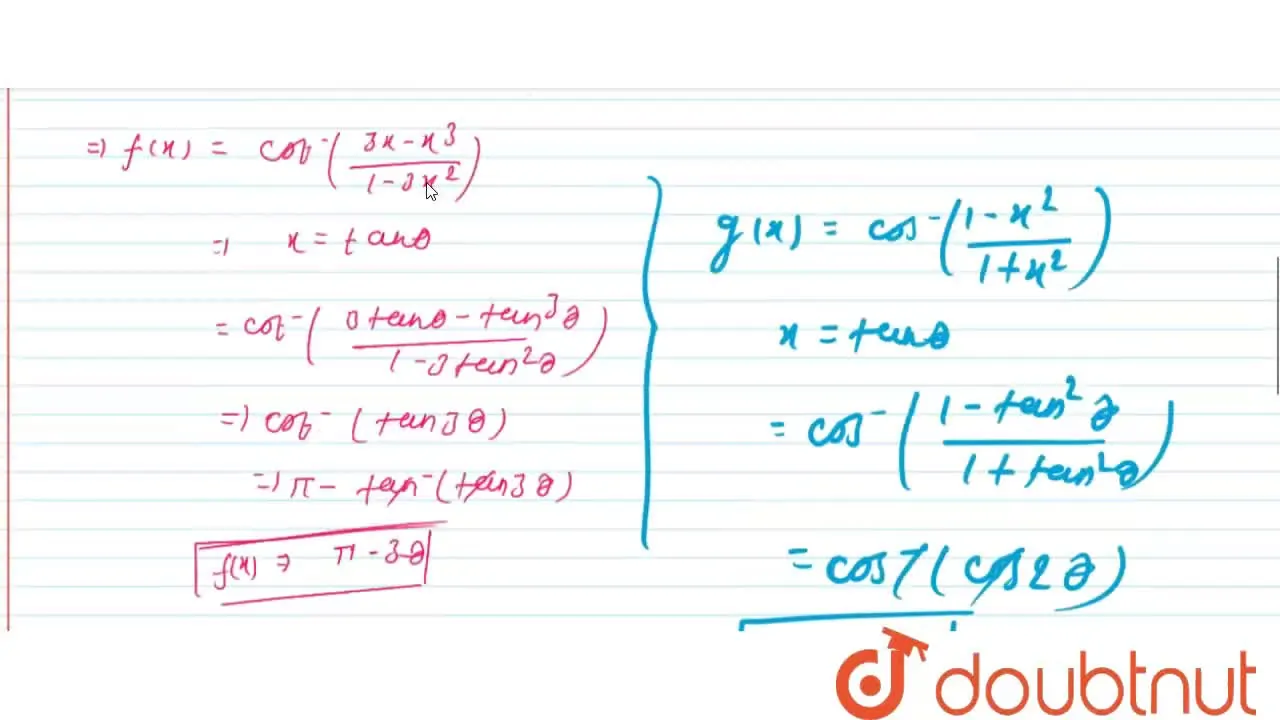 ⇒ f(x) = cot⁻(3x-x³/1-3x²)
⇒ x = tanθ
= cot⁻(3tanθ-tan³θ/1-3tan²θ)
⇒ cot⁻(tan3θ)
⇒ π- tan⁻(tan3θ)
f(x) ⇒ π-3θ
g(x) = cos⁻(1-x²/1+x²)
x = tanθ
= cos⁻(1-tan²θ/1+tan²θ)
= cos⁻(cos2θ)
doubtnut